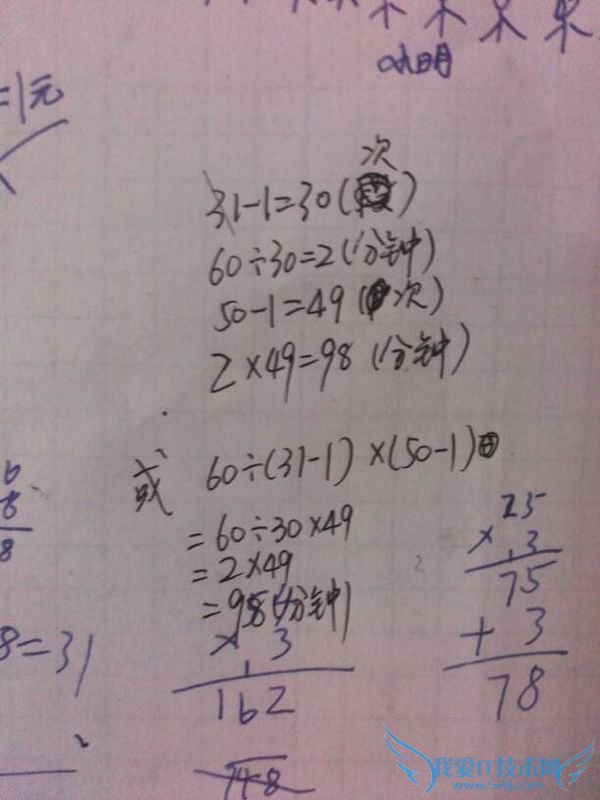 小明
=1元
次
31-1=30( )
60÷30=2(分钟)
50-1=49(次)
2×49=98(分钟)
或 60÷(31-1)×(50-1)
=60÷30×49
=2×49
=98(分钟)
× 3
162
748
25
× 3
75
+ 3
78
6
8
8
8=31
我爱IT技术网
www.52ij.com